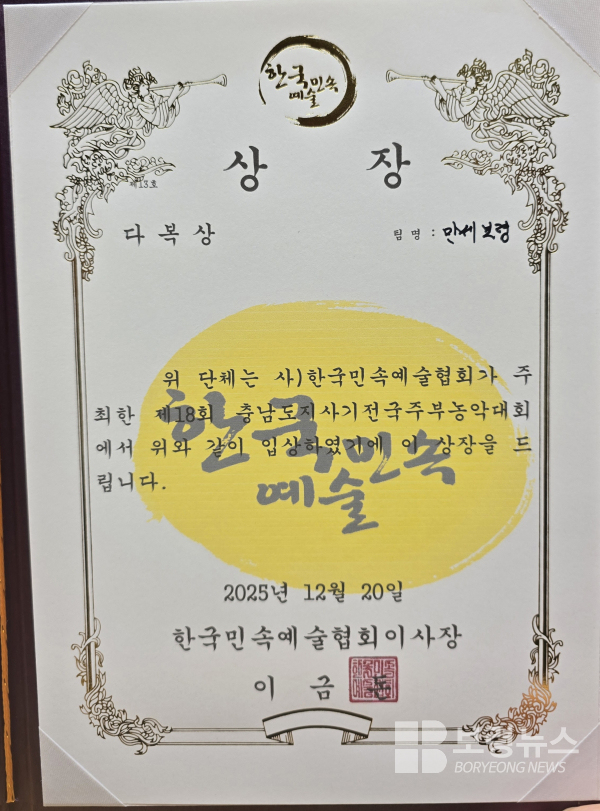 한국민속
예술
제13호
상 장
다복상
팀명 : 만세보령
위 단체는 사)한국민속예술협회가 주
최한 제18회 충남도지사기전국주부농악대회
에서 위와 같이 입상하였기에 이 상장을 드
립니다.
한국민속
예술
2025년 12월 20일
한국민속예술협회이사장
이 금
보령뉴스
BORYEONG NEWS